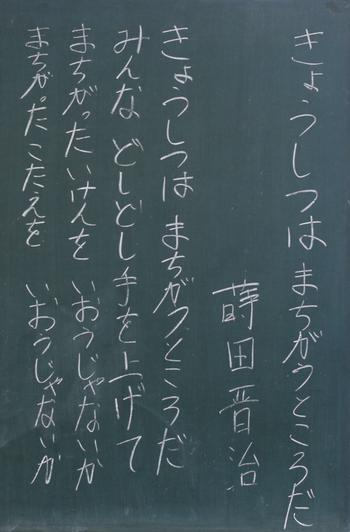 きょうしつは まちがうところだ
蒔田晋治
きょうしつは まちがうところだ
みんな どしどし手を上げて
まちがった いけんを いおうじゃないか
まちがった こたえを いおうじゃないか